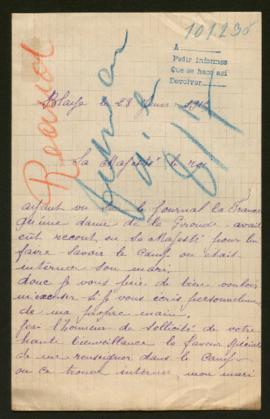 101.236
A
Pedir informes
Que se hace así
Devolver
Blaye le 28
Sa Majesté le roi
ayant vu le journal la France
qu'une dame de la Gironde avait
eût recourt a Sa Majesté pour lui
faire savoir le Camp ou était
interner son mari,
donc je vous prie de bien vouloir
m'excuser si je vous écris personnellement
de ma propre main.
j'ai l'honneur de sollicité de votre
haute bienveillance la faveur spéciale
de me renseigner dans le Camp
ou ce trouve interner mon mari